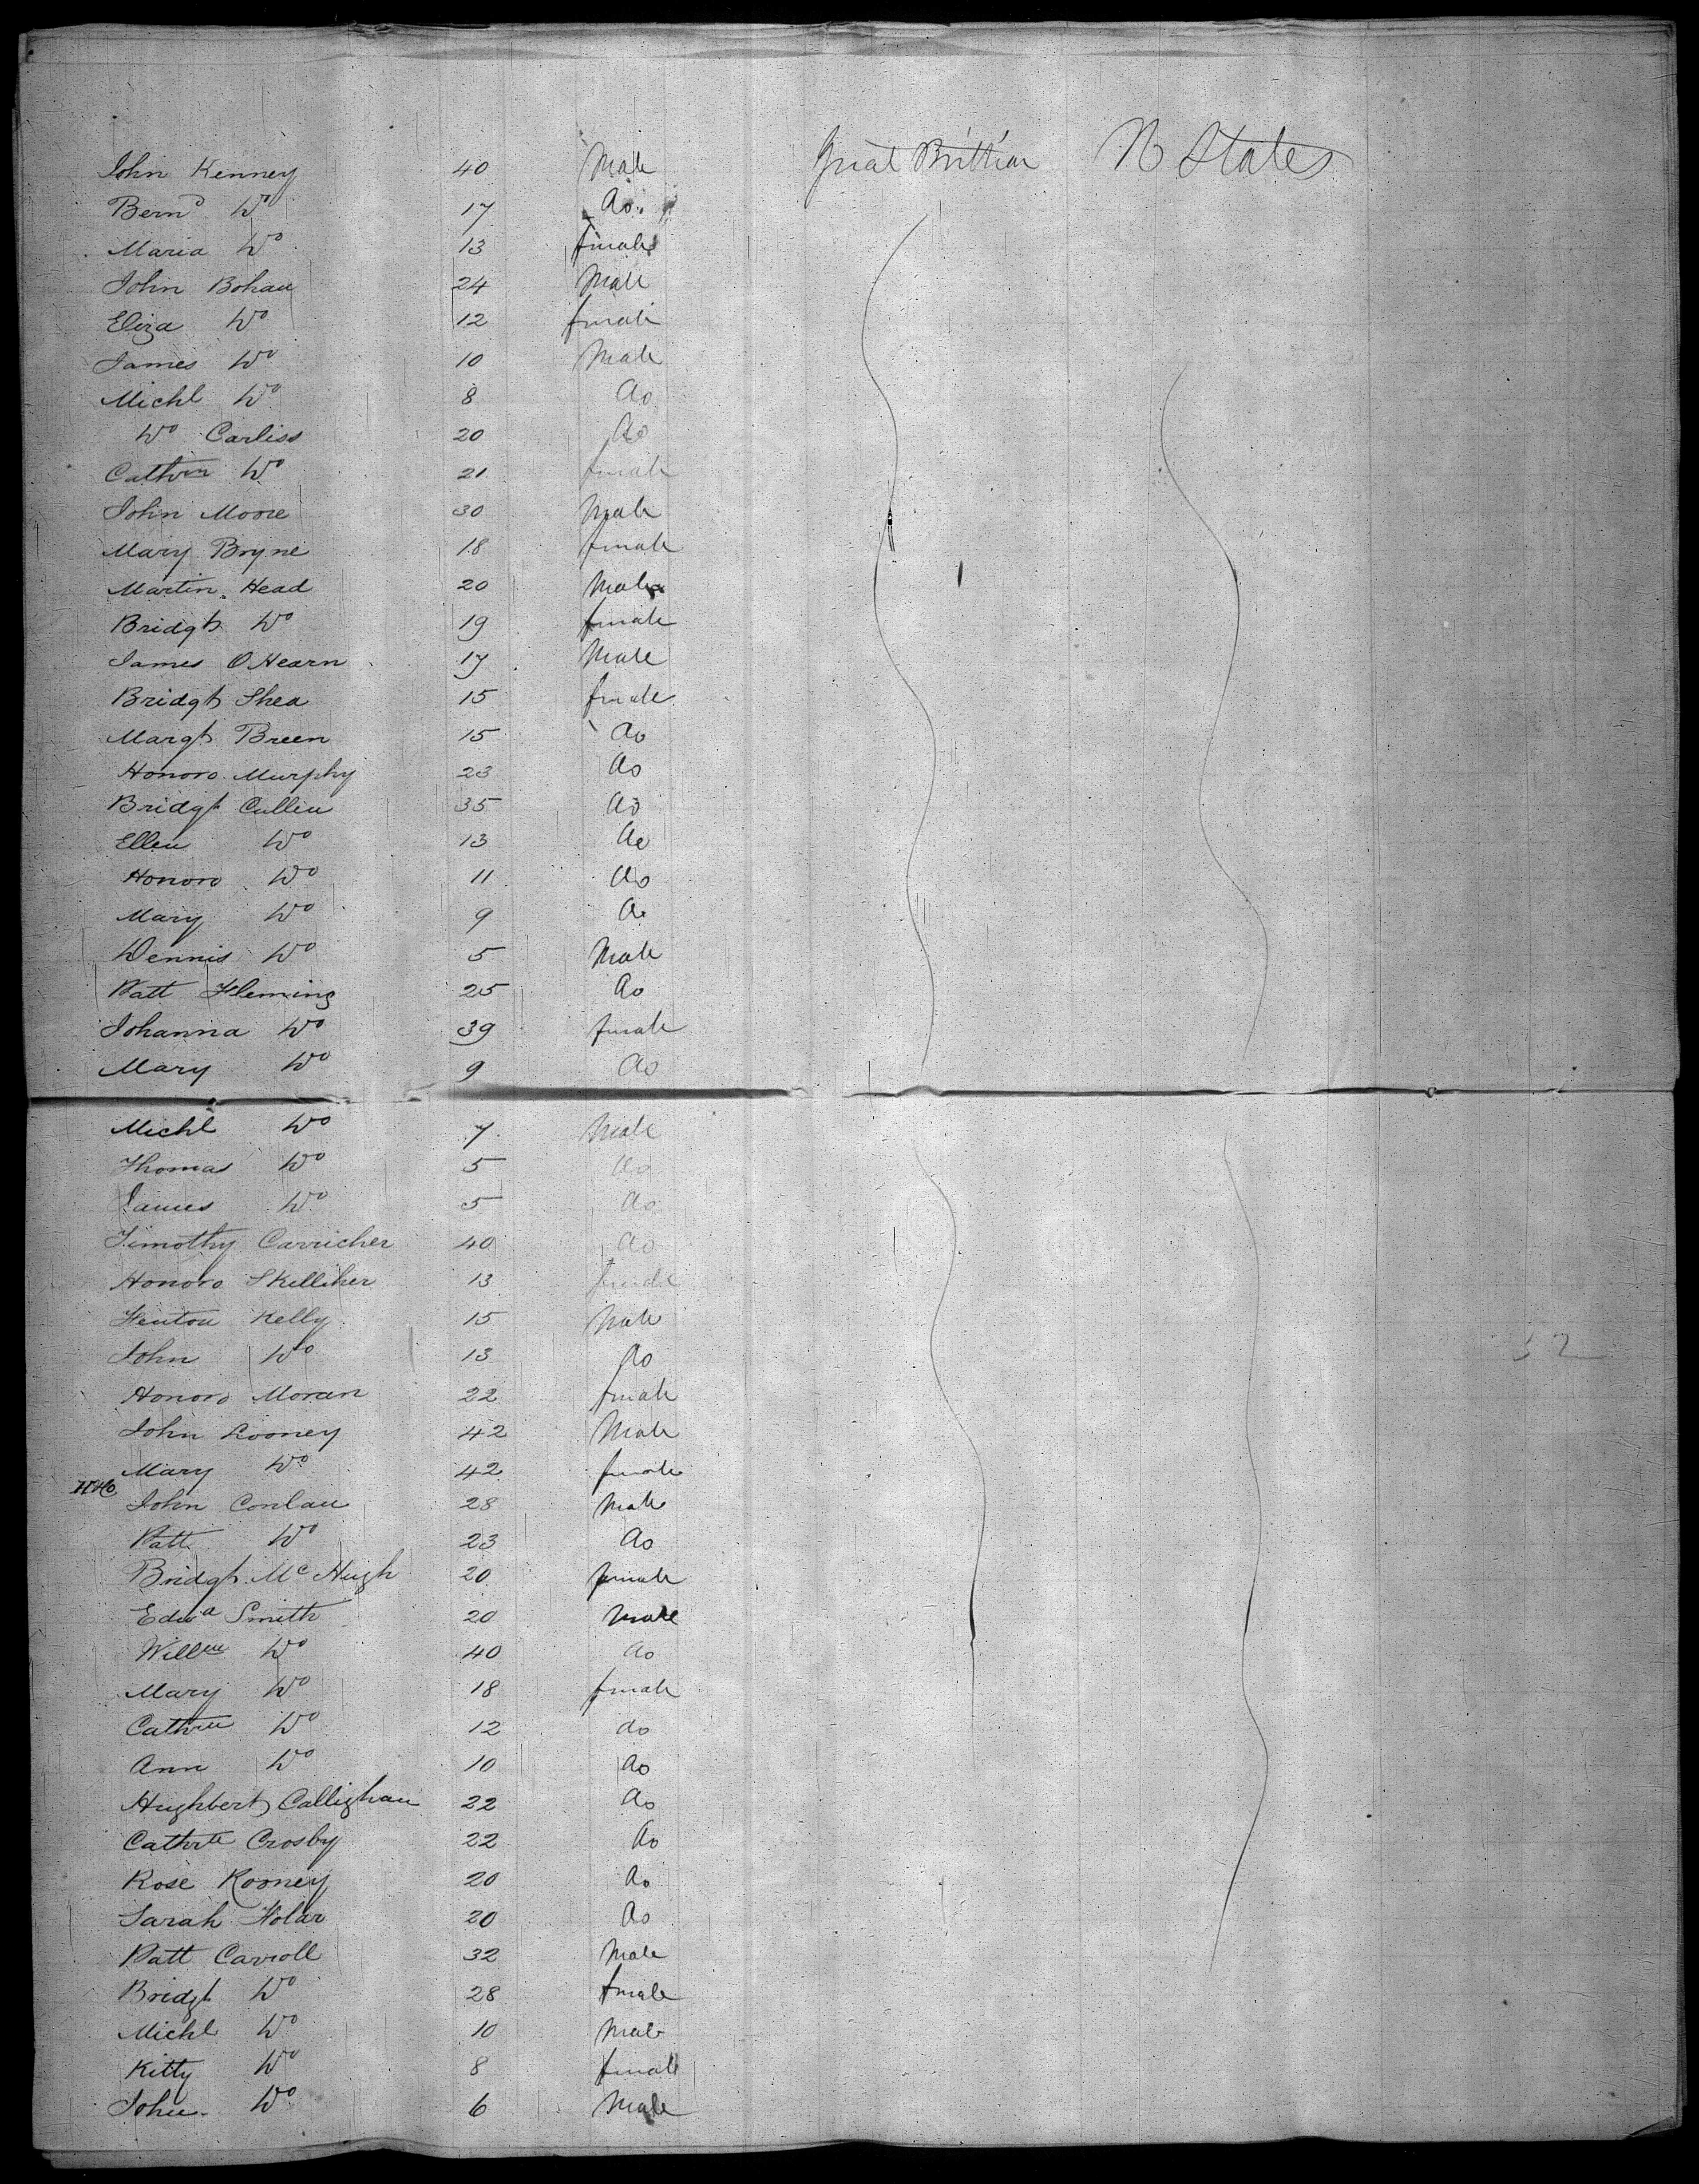 John Kenney 40 Male Great Brittian U States
Bern^d Do 17 do
Maria Do 13 female
John Bohan 24 Male
Eliza Do 12 female
James Do 10 Male
Michl Do 8 do
Do Carliss 20 do
Cathrn Do 21 female
John Moore 30 Male
Mary Bryne 18 female
Martin Head 20 Male
Bridgt Do 19 female
James OHearn 17 Male
Bridgt Shea 15 female
Margt Breen 15 do
Honoro Murphy 23 do
Bridgt Cullen 35 do
Ellen Do 13 do
Honoro Do 11 do
Mary Do 9 do
Dennis Do 5 Male
Patt Fleming 25 do
Johanna Do 39 female
Mary Do 9 do
Michl Do 7 Male
Thomas Do 5 do
James Do 5 do
Timothy Carricher 40 do
Honoro Skelliher 13 female
Fenton Kelly 15 Male
John Do 13 do
Honoro Moran 22 female
John Looney 42 Male
Mary Do 42 female
John Conlan 28 Male
Patt Do 23 do
Bridgt McHugh 20 female
Edwd Smith 20 Male
Willm Do 40 do
Mary Do 18 female
Cathrn Do 12 do
Ann Do 10 do
Hughbert Callighan 22 do
Cathrn Crosby 22 do
Rose Rooney 20 do
Sarah Holar 20 do
Patt Carroll 32 Male
Bridgt Do 28 female
Michl Do 10 Male
Kitty Do 8 female
John Do 6 Male